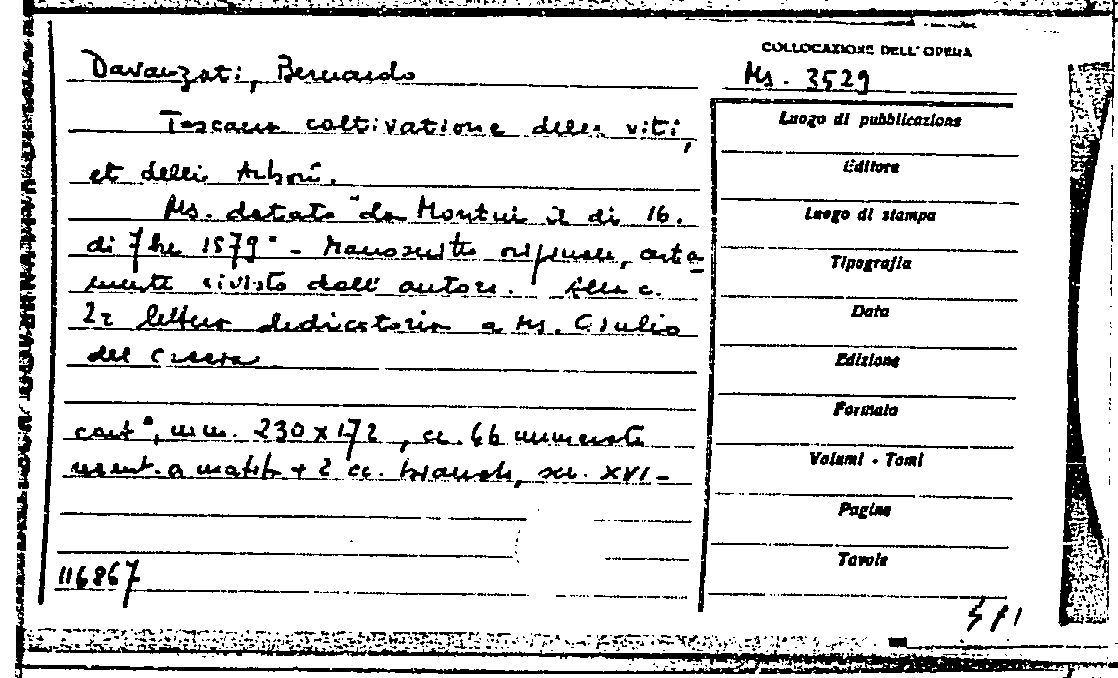 COLLOCAZIONE DELL'OPERA
Davanzati, Bernardo
Ms. 3529
Toscana coltivatione delle viti,
et delli Arbori.
Ms. datato "da Montui il di 16.
di 7bre 1579" - Manoscritto originale, certa
mente rivisto dall'autore. Alla c.
2r lettera dedicatoria a Ms. Giulio
del Caccia
cart°, mm. 230 x 172, cc. 66 numerate
recent. a matita + 2 cc. bianche, sec. XVI -
116867
Luogo di pubblicazione
Editore
Luogo di stampa
Tipografia
Data
Edizione
Formato
Volumi - Tomi
Pagine
Tavole